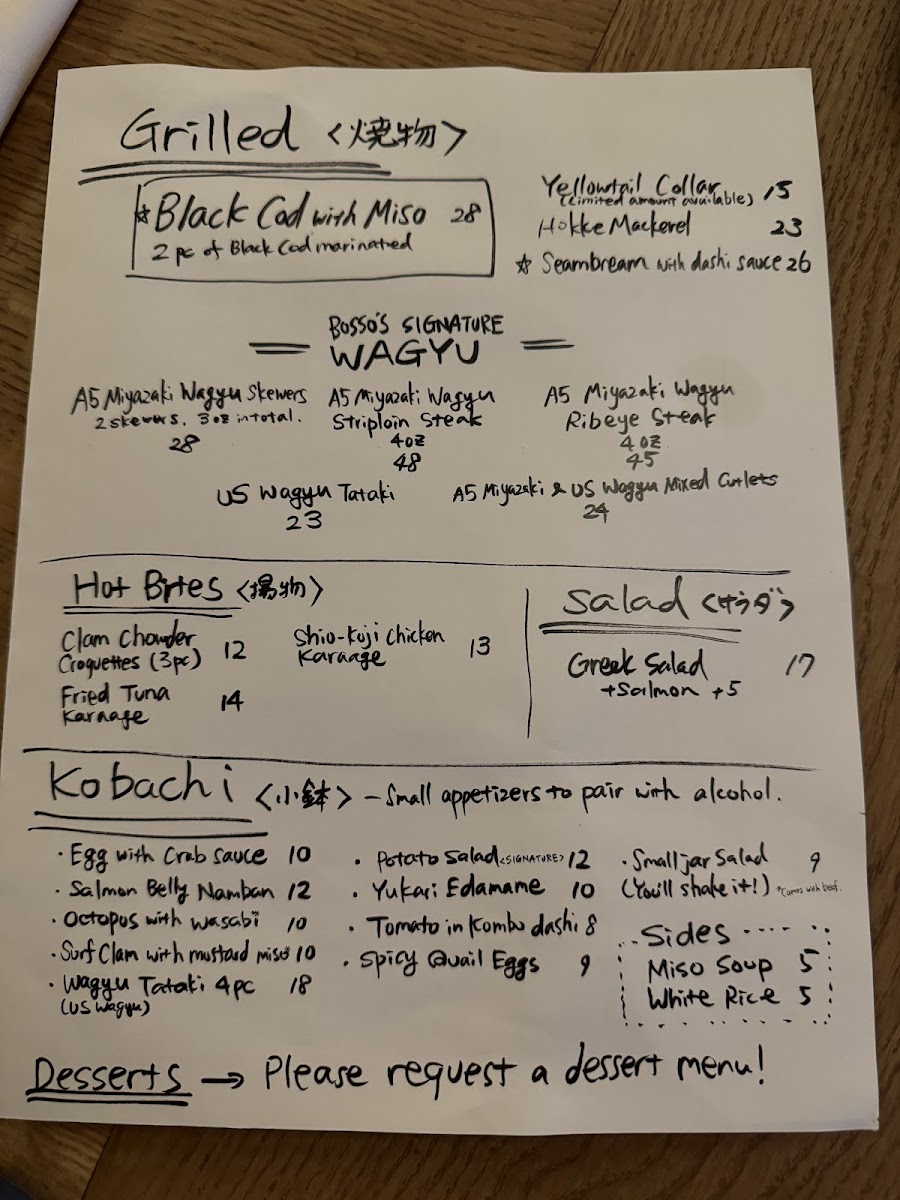 Grilled <焼物>
☆ Black Cod with Miso 28
2 pc of Black Cod marinated
Yellowtail Collar 15
(Limited amount available)
Hokke Mackerel 23
☆ Seambream with dashi sauce 26
BOSSO'S SIGNATURE
WAGYU
A5 Miyazaki Wagyu Skewers
2 skewers. 3oz in total.
28
A5 Miyazaki Wagyu
Striploin Steak
4oz
48
A5 Miyazaki Wagyu
Ribeye Steak
4oz
45
US Wagyu Tataki
23
A5 Miyazaki & US Wagyu Mixed Cutlets
24
Hot Bites <揚物>
Clam Chowder
Croquettes (3pc) 12
Fried Tuna
Karaage 14
Shio-Koji Chicken
Karaage 13
Salad <サラダ>
Greek Salad 17
+Salmon +5
Kobachi <小鉢> - Small appetizers to pair with alcohol.
・Egg with Crab Sauce 10
・Salmon Belly Namban 12
・Octopus with wasabi 10
・Surf Clam with mustard miso 10
・Wagyu Tataki 4pc 18
(US Wagyu)
・Potato Salad <SIGNATURE> 12
・Yukari Edamame 10
・Tomato in Kombu dashi 8
・Spicy Quail Eggs 9
・Small jar Salad 9
(You'll shake it!) *Comes with beef.
Sides
Miso Soup 5
White Rice 5
Desserts → Please request a dessert menu!